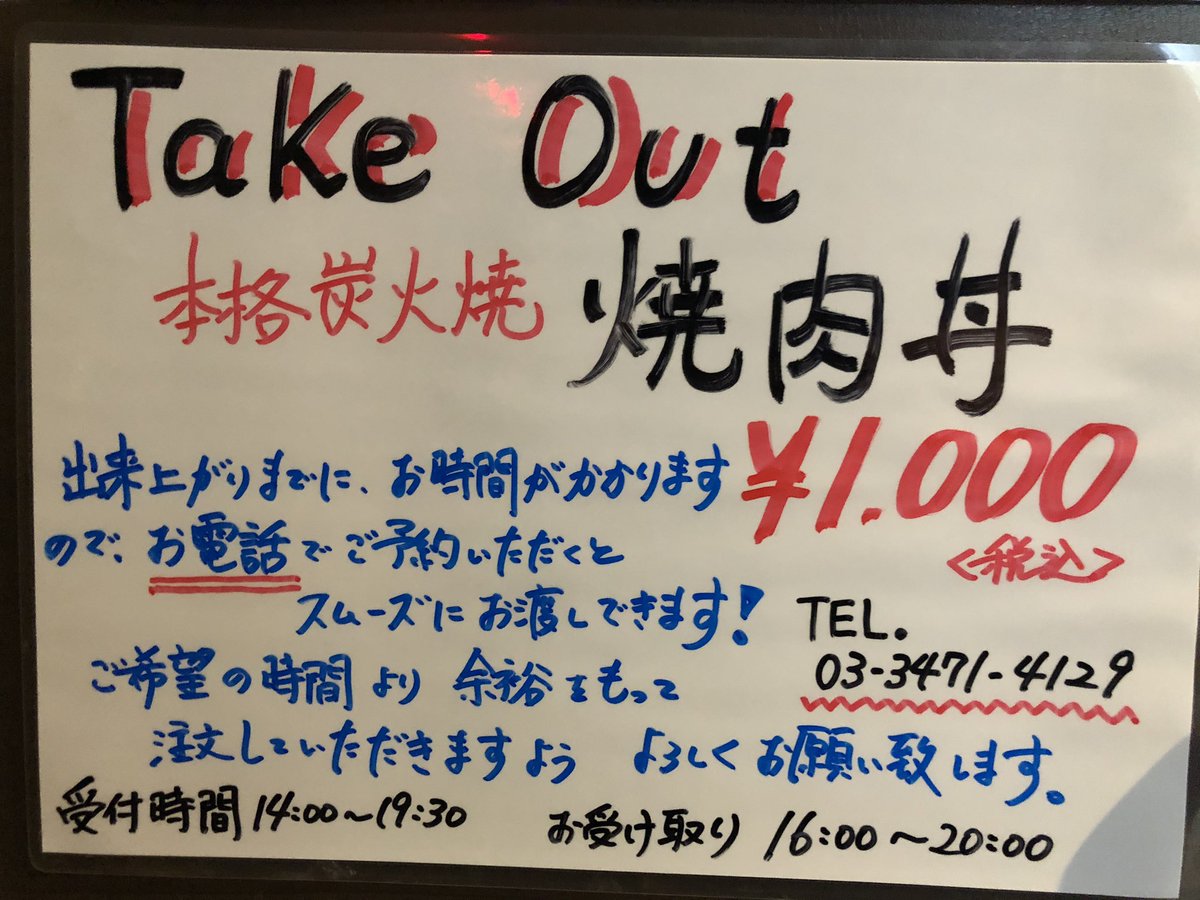 Take Out
本格炭火焼 焼肉丼
¥1.000
<税込>
出来上がりまでに、お時間がかかります
ので、お電話でご予約いただくと
スムーズにお渡しできます!
ご希望の時間より 余裕をもって
注文していただきますよう よろしくお願い致します。
TEL.
03-3471-4129
受付時間 14:00~19:30 お受け取り 16:00~20:00